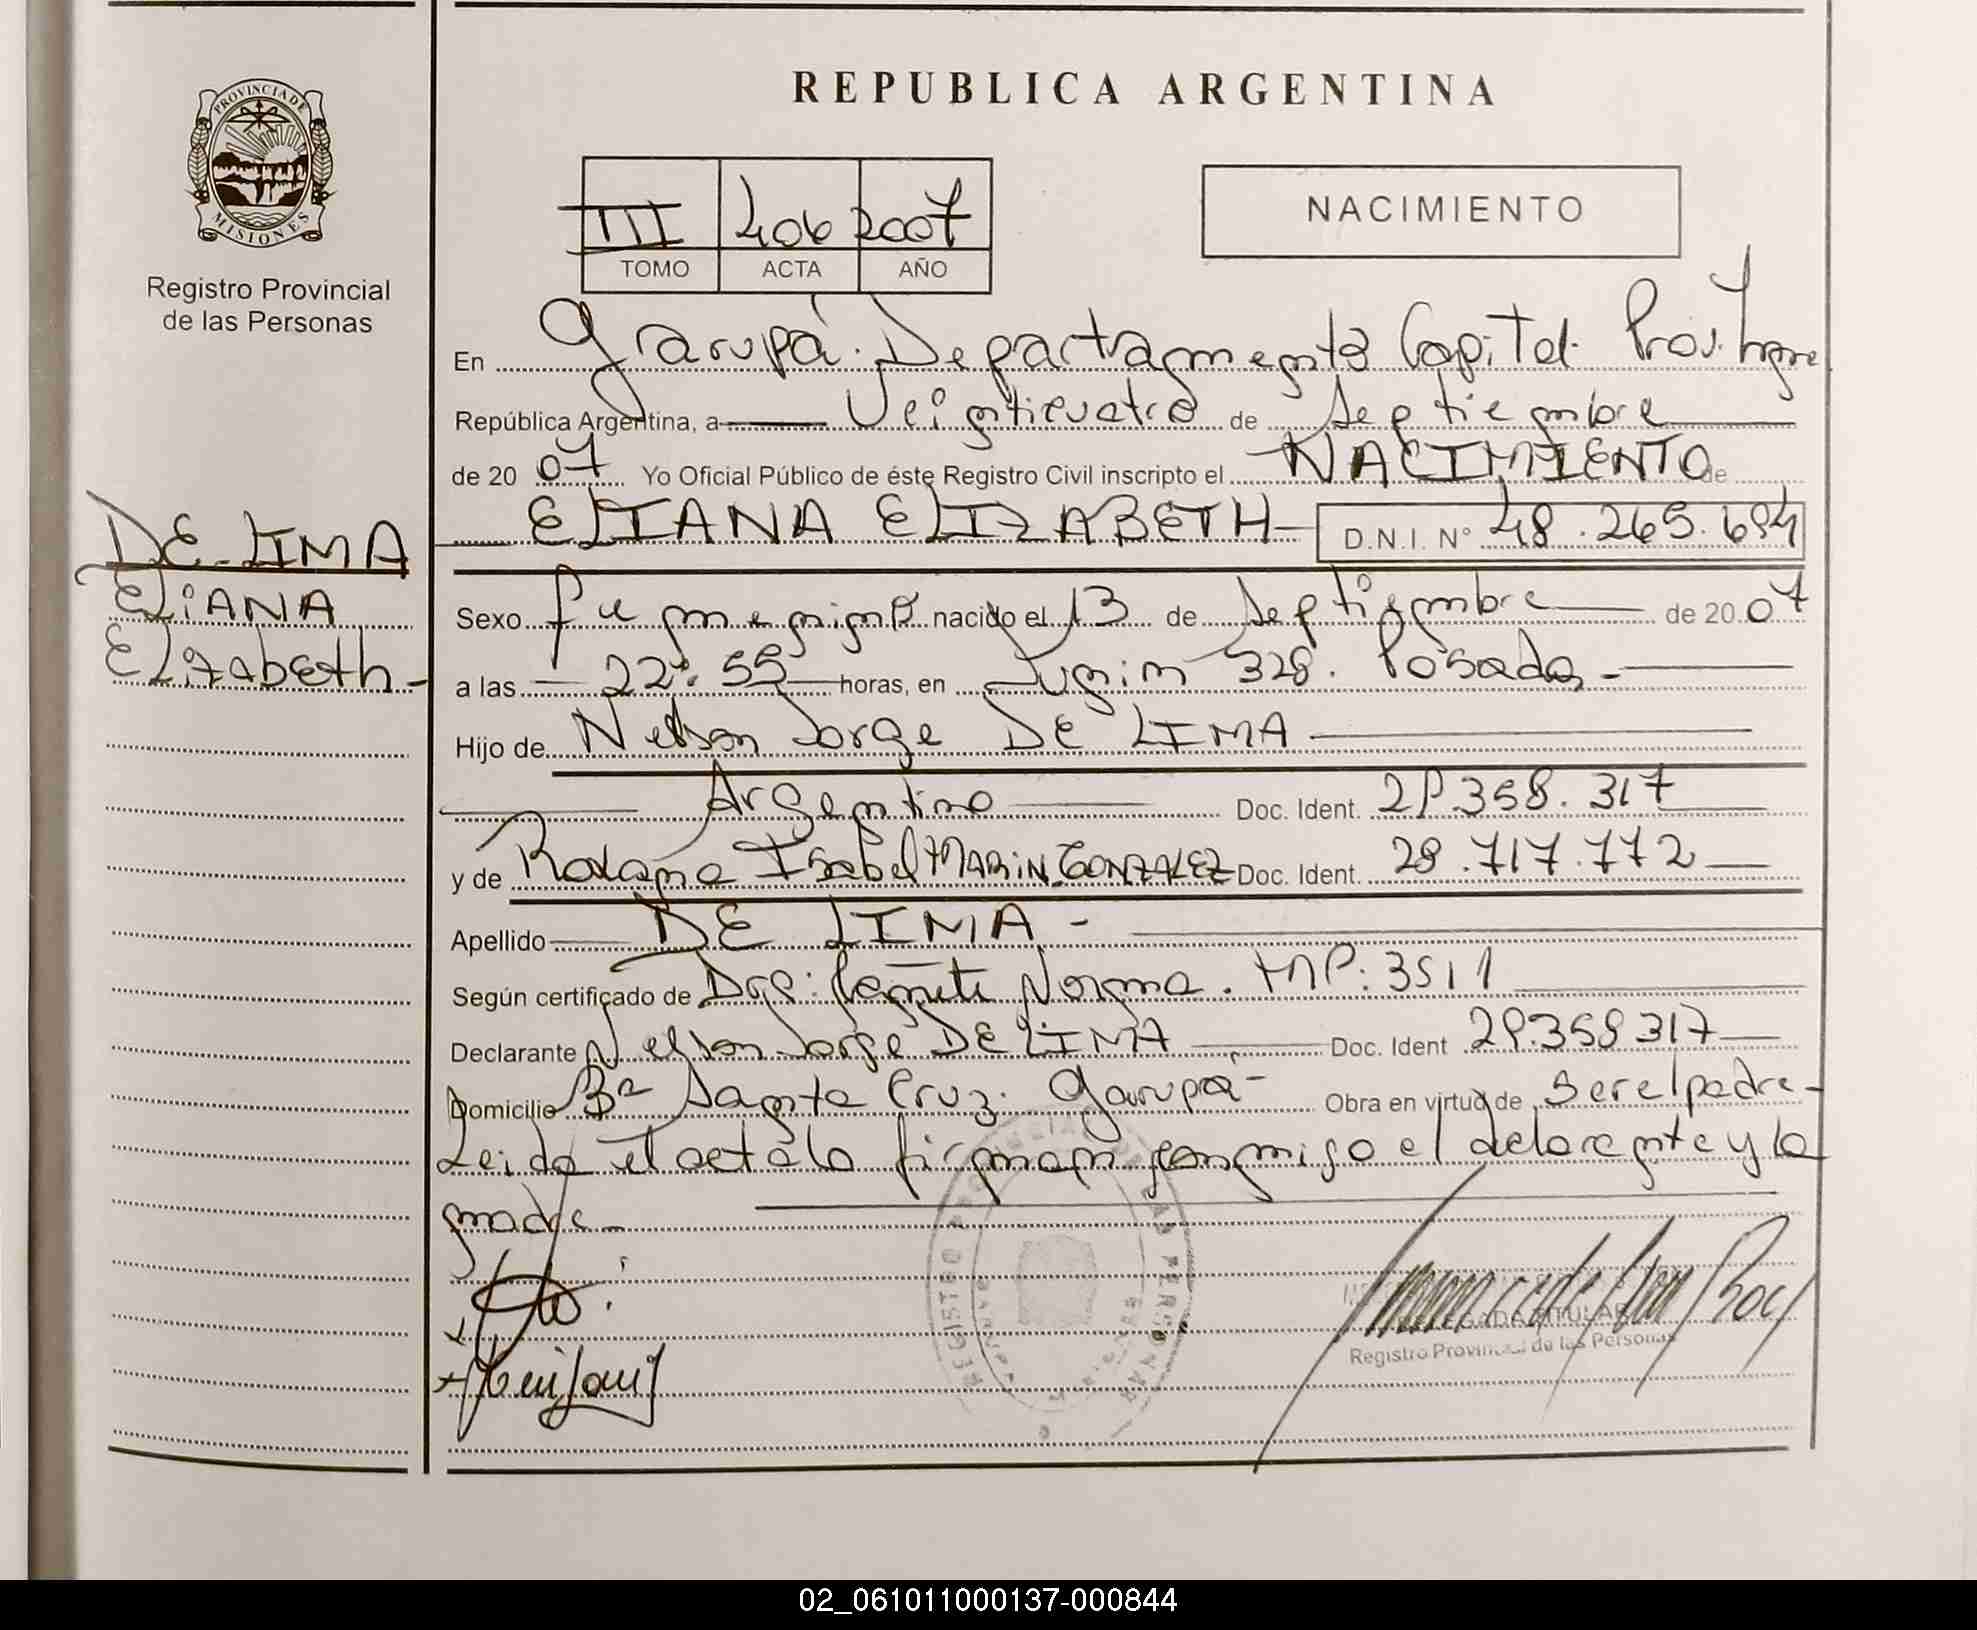 PROVINCIA DE
MISIONES
Registro Provincial
de las Personas
DE LIMA
ELiANA
Elizabeth-
REPUBLICA ARGENTINA
III 406 2007
TOMO ACTA AÑO
NACIMIENTO
En Garupá. Departamento Capital. Prov. Misiones
República Argentina, a Veinticuatro de Septiembre
de 20 07 Yo Oficial Público de éste Registro Civil inscripto el NACIMIENTO de
ELIANA ELIZABETH D.N.I. N° 48.265.694
Sexo femenino nacido el 13 de Septiembre de 20 07
a las 22:55 horas, en Junin 328. Posadas-
Hijo de Nelson Jorge DE LIMA
Argentino Doc. Ident. 29.358.317
y de Roxana Isabel MARIN GONZALEZ Doc. Ident. 28.717.772
Apellido DE LIMA-
Según certificado de Dra: Norma. MP: 3511
Declarante Nelson Jorge DE LIMA Doc. Ident 29.358317
Domicilio Bº Santa Cruz. Garupá- Obra en virtud de ser el padre-
Leida el acta la firman conmigo el declarante y la
madre-
TITULAR
Registro Provincial de las Personas
02_061011000137-000844